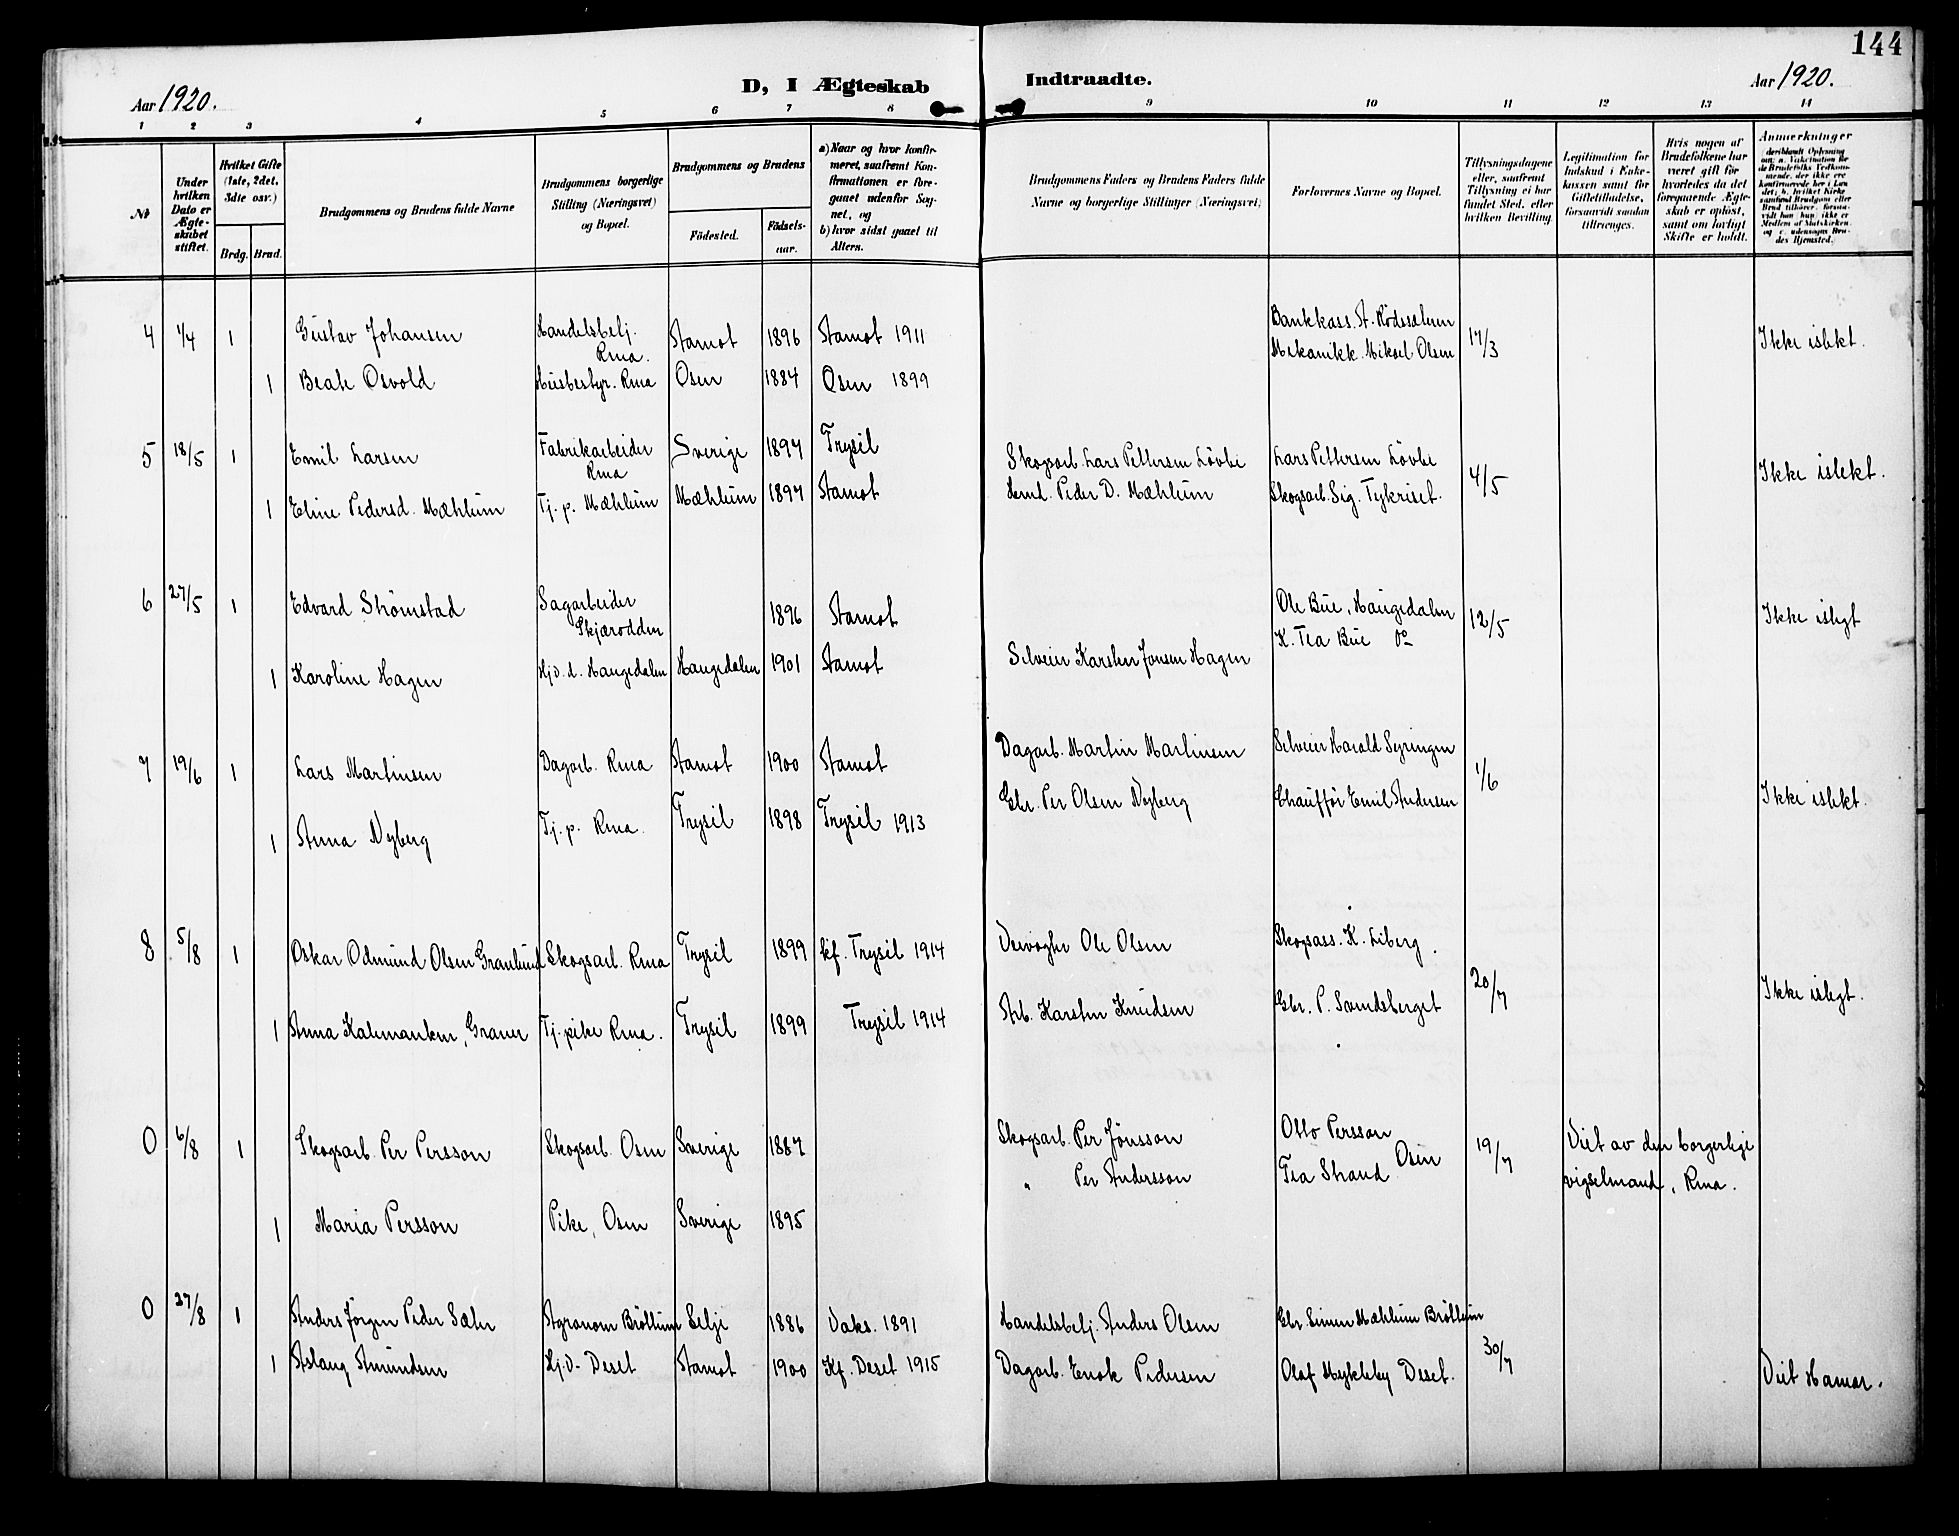 144
Aar 1920.
D, I Ægteskab Indtraadte.
Aar 1920.
1 2 3 4 5 6 7 8 9 10 11 12 13 14
№
Under hvilken Dato er Ægte-skabet stiftet.
Hvilket Gifte (1ste, 2det, 3die osv.)
Brdg. Brud.
Brudgommens og Brudens fulde Navne
Brudgommens borgerlige Stilling (Næringsvei) og Bopæl.
Brudgommens og Brudens
Fødested. Fødsels-aar.
a) Naar og hvor konfir-meret, saafremt Kon-firmationen er fore-gaaet udenfor Sog-net, og
b) hvor sidst gaaet til Alters.
Brudgommens Faders og Brudens Faders fulde Navne og borgerlige Stillinger (Næringsvei)
Forlovernes Navne og Bopæl.
Tillysningsdagene eller, saafremt Tillysning ei har fundet Sted, efter hvilken Bevilling.
Legitimation for Indskud i Enke-kassen samt for Giftetilladelse, forsaavidt saadan tiltrænges.
Hvis nogen af Brudefolkene har været gift før hvorledes da det foregaaende Ægte-skab er opløst, samt om lovligt Skifte er holdt.
Anmærkninger
4 1/4 1 Gustav Johansen Handelsbetj. Rena. Aamot 1896 Aamot 1911 Bankkass. A. Rødssæteren 17/3 Ikke islekt.
Mekanikk. Mikael Olsen
1 Beate Osvold Husbestyr. Rena Osen 1884 Osen 1899
5 18/5 1 Emil Larsen Fabrikarbeider Rena Sverige 1897 Trysil Skogsarb. Lars Pettersen Løvbe Lars Pettersen Løvbe 4/5 Ikke islekt.
1 Eline Pedersd. Mæhlum Tj. p. Mæhlum Mæhlum 1897 Aamot Peder D. Mæhlum Skogsarb. Sig. Tykriset.
6 27/5 1 Edvard Strømstad Sagarbeider Skjærodden 1896 Aamot Ole Bue, Haugedalen 12/5 Ikke isligt
K. Tea Bue do
1 Karoline Hagen Hj. d. Haugedalen Haugedalen 1901 Aamot Selveier Karsten Jonsen Hagen
7 19/6 1 Lars Martinsen Dagarb. Rena Aamot 1900 Aamot Dagarb. Martin Martinsen Selveier Harald Syringen 1/6 Ikke islekt.
1 Anna Nyberg Tj. p. Rena. Trysil 1898 Trysil 1913 Gbr. Per Olsen Nyberg Chauffør Emil Andersen
8 5/8 1 Oskar Odmund Olsen Granlund Skogsarb. Rena Trysil 1899 kf. Trysil 1914 Veivogter Ole Olsen Skogsass. K. Liberg. 20/7 Ikke isligt.
1 Anna Graner Tj. pike Rena. Trysil 1899 Trysil 1914 Arb. Karsten Knudsen Gbr. P. Sandsberget
0 6/8 1 Skogsarb. Per Persson Skogsarb. Osen Sverige 1887 Skogsarb. Per Jønsson Otto Persson 19/7 Viet av den borgerlige
" Per Andersson Tea Strand Osen vigselmand, Rena.
1 Maria Persson Pike, Osen Sverige 1895
0 27/8 1 Anders Jørgen Peder Sæter Agronom Brøttum Selje 1886 Vaks. 1891 Handelsbetj. Anders Olsen Gbr. Simen Mæhlum Brøttum 30/7
1 Aslaug Amundsen Hj. D. Deset Aamot 1900 Kf. Deset 1915 Dagarb. Enok Pedersen Olaf Mykleby Deset. Viet Hamar.